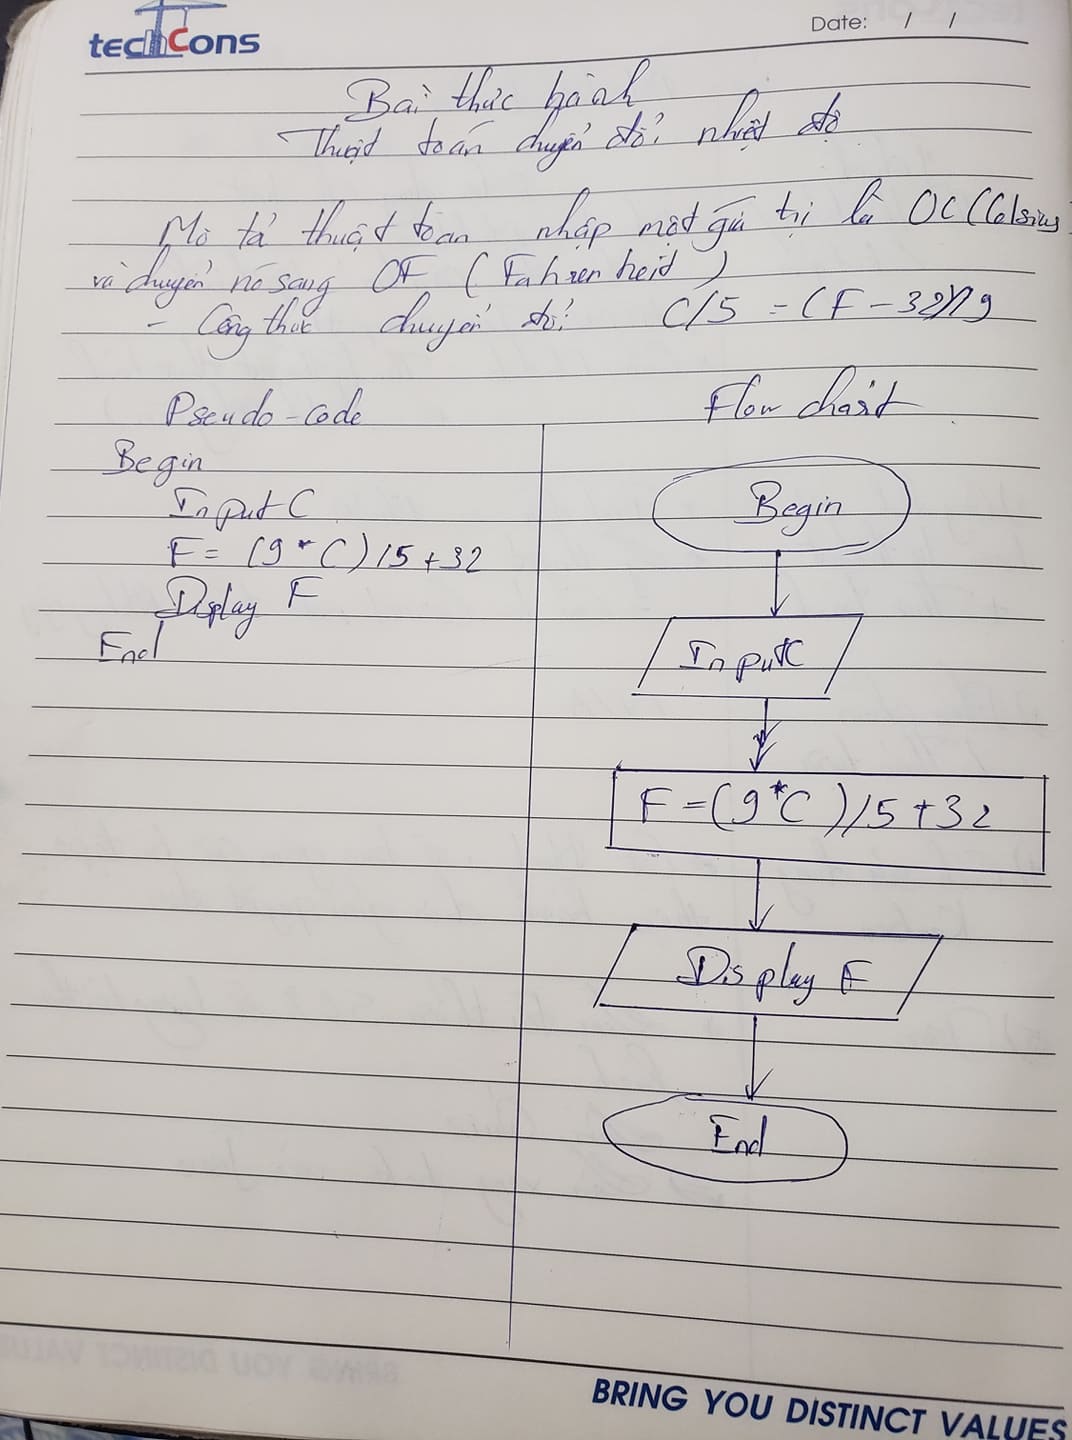 techCons
Date: / /
Bài thực hành
Thuật toán chuyển đổi nhiệt độ
Mô tả thuật toán nhập một giá trị là OC (Celsius)
và chuyển nó sang OF (Fahrenheid)
- Công thức chuyển đổi: C/5 = (F - 32)/9
Pseudo-code
Flow chart
Begin
Input C
F = (9 * C) / 5 + 32
Display F
End
Begin
Input C
F = (9 * C) / 5 + 32
Display F
End
BRING YOU DISTINCT VALUES